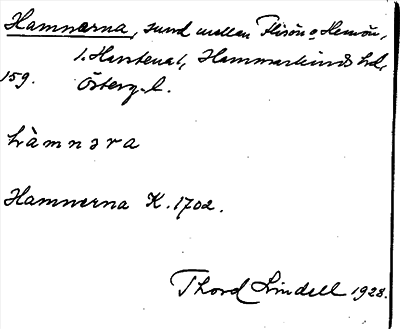 Hamnerna, sund mellan Flisön o Hemön,
S. Harstena l, Hammarkinds hd,
159. Österg. l.
hàmnəra
Hamnerna K. 1702.
Thord Lindell 1928.